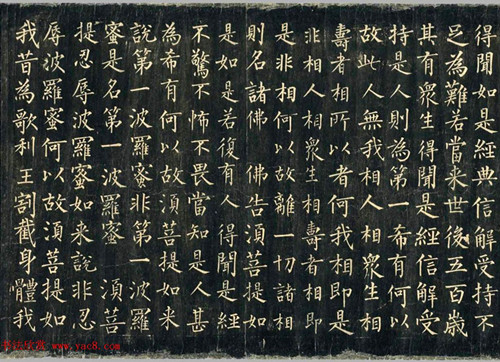 得聞如是經典信解受持不
足為難若當来世後五百歲
其有衆生得聞是經信解受
持是人則為第一希有何以
故此人無我相人相衆生相
壽者相所以者何我相即是
非相人相衆生相壽者相即
是非相何以故離一切諸相
則名諸佛 佛告須菩提如
是如是若復有人得聞是經
不驚不怖不畏當知是人甚
為希有何以故須菩提如来
說第一波羅蜜非第一波羅
蜜是名第一波羅蜜 須菩
提忍辱波羅蜜如来說非忍
辱波羅蜜何以故須菩提如
我昔為歌利王割截身體我
书法欣赏 www.yac8.com